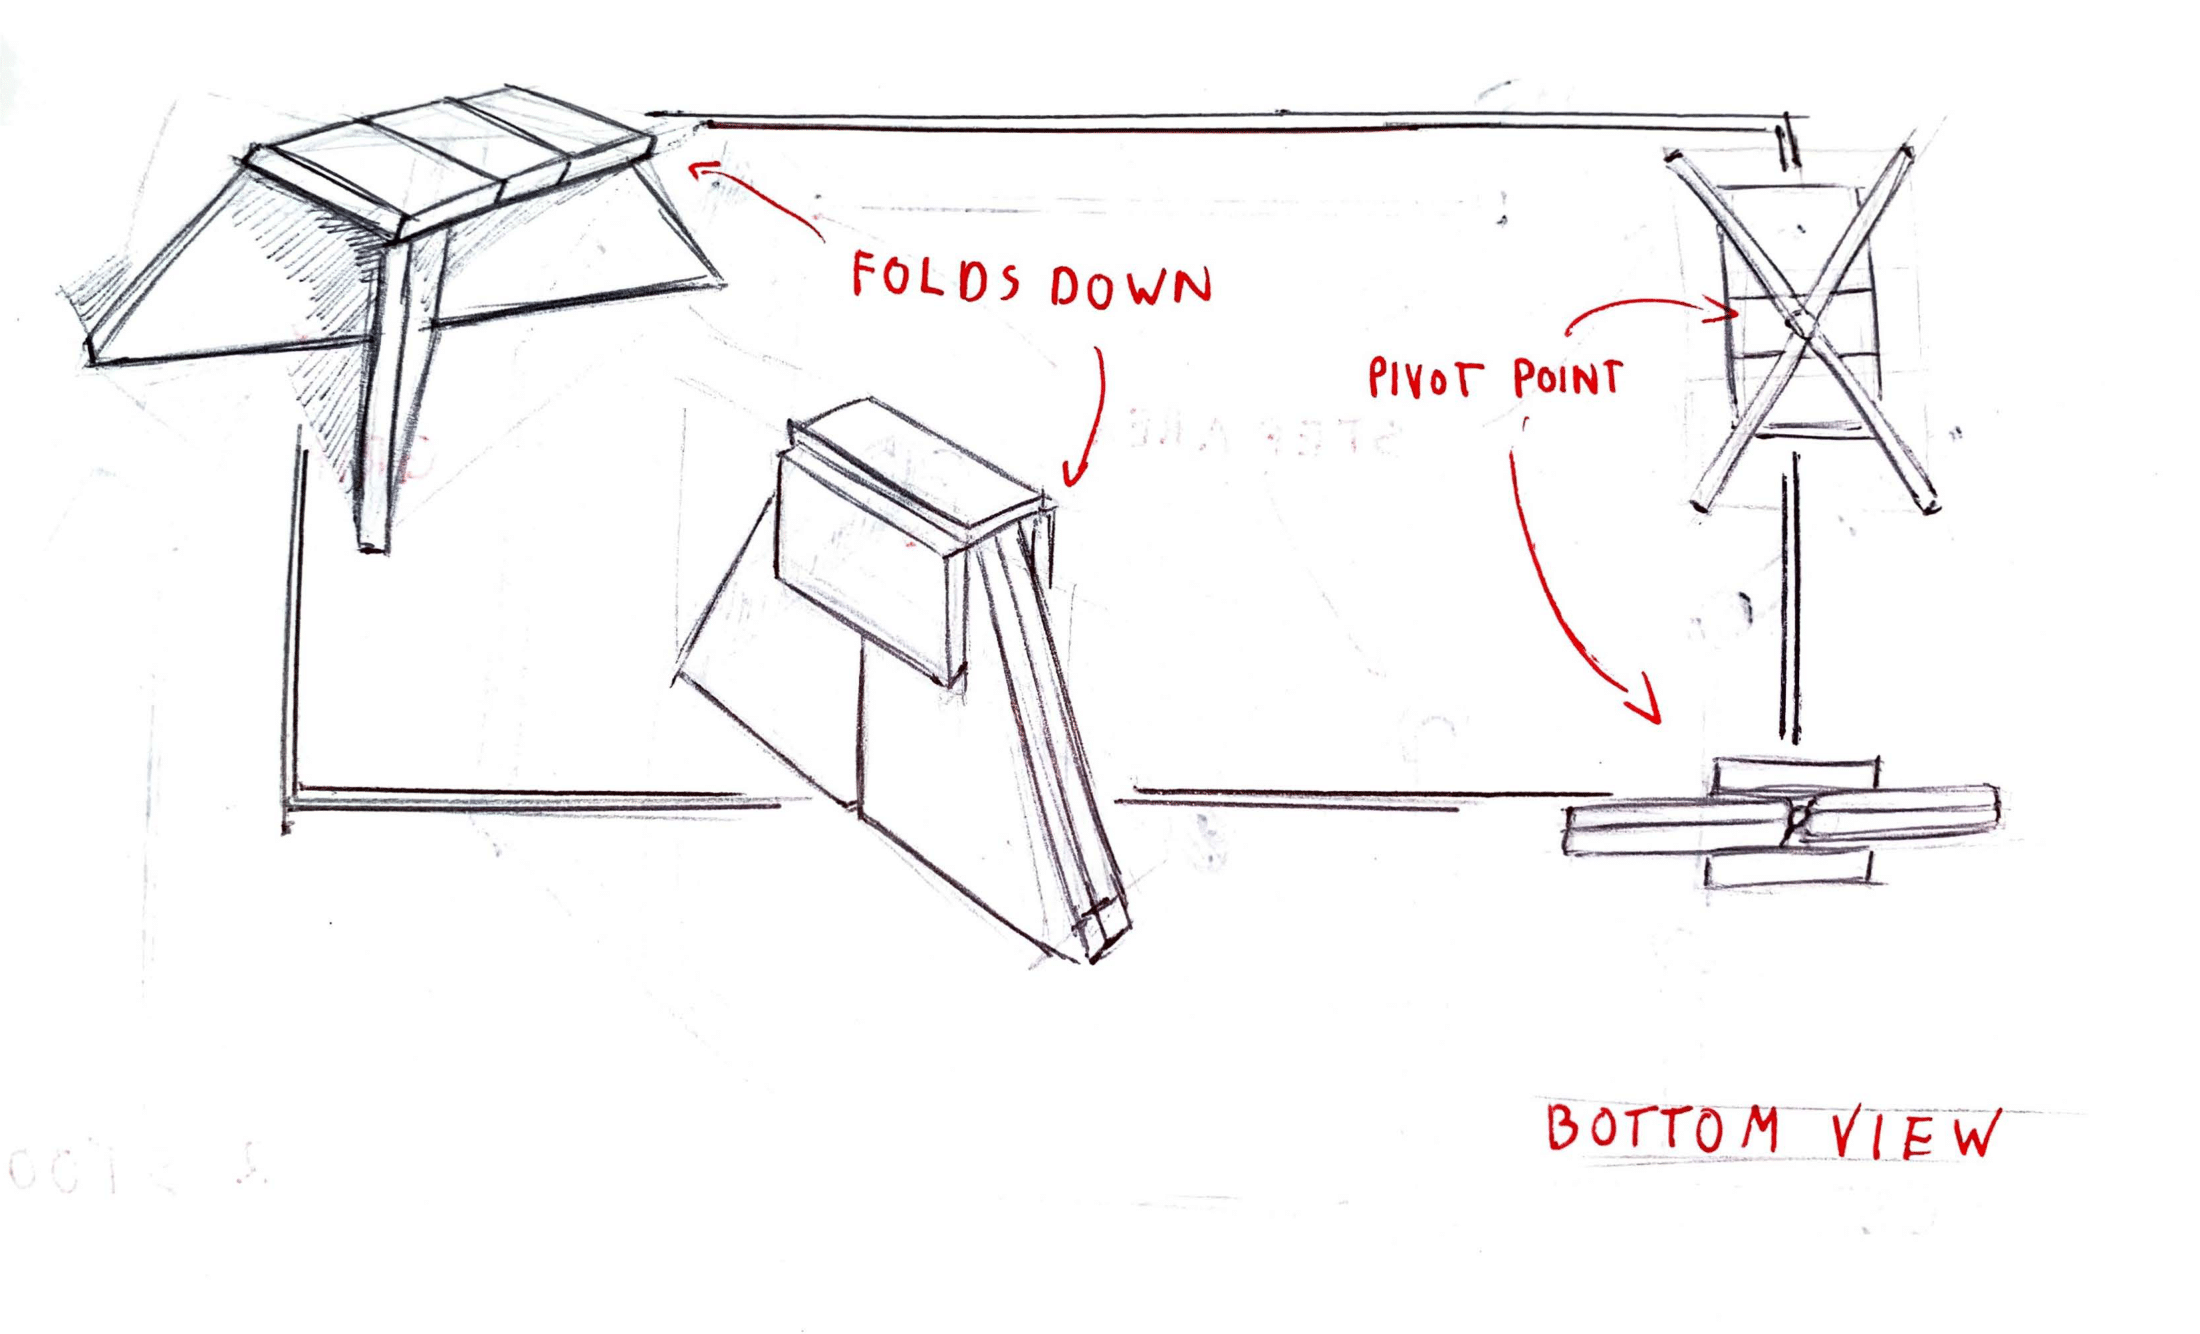 FOLDS DOWN
PIVOT POINT
BOTTOM VIEW